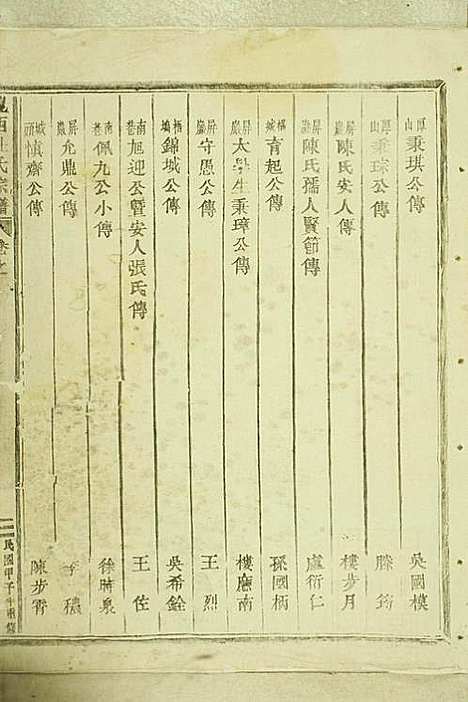 厚山 秉琪公傳 吳國模
厚山 秉琮公傳 滕筠
屏巖 陳氏安人傳 樓步月
屏巖 陳氏孺人賢節傳 盧衍仁
櫧城 育起公傳 孫國柄
屏巖 太學生秉璋公傳 樓應南
屏巖 守愚公傳 王烈
錦城公傳 吳希銓
南巷 旭迎公暨安人張氏傳 王佐
南巷 佩九公小傳 徐時泉
屏巖 允鼎公傳 李穠
城頭 慎齋公傳 陳步霄
西杜氏宗譜 卷之
民國甲子年重修